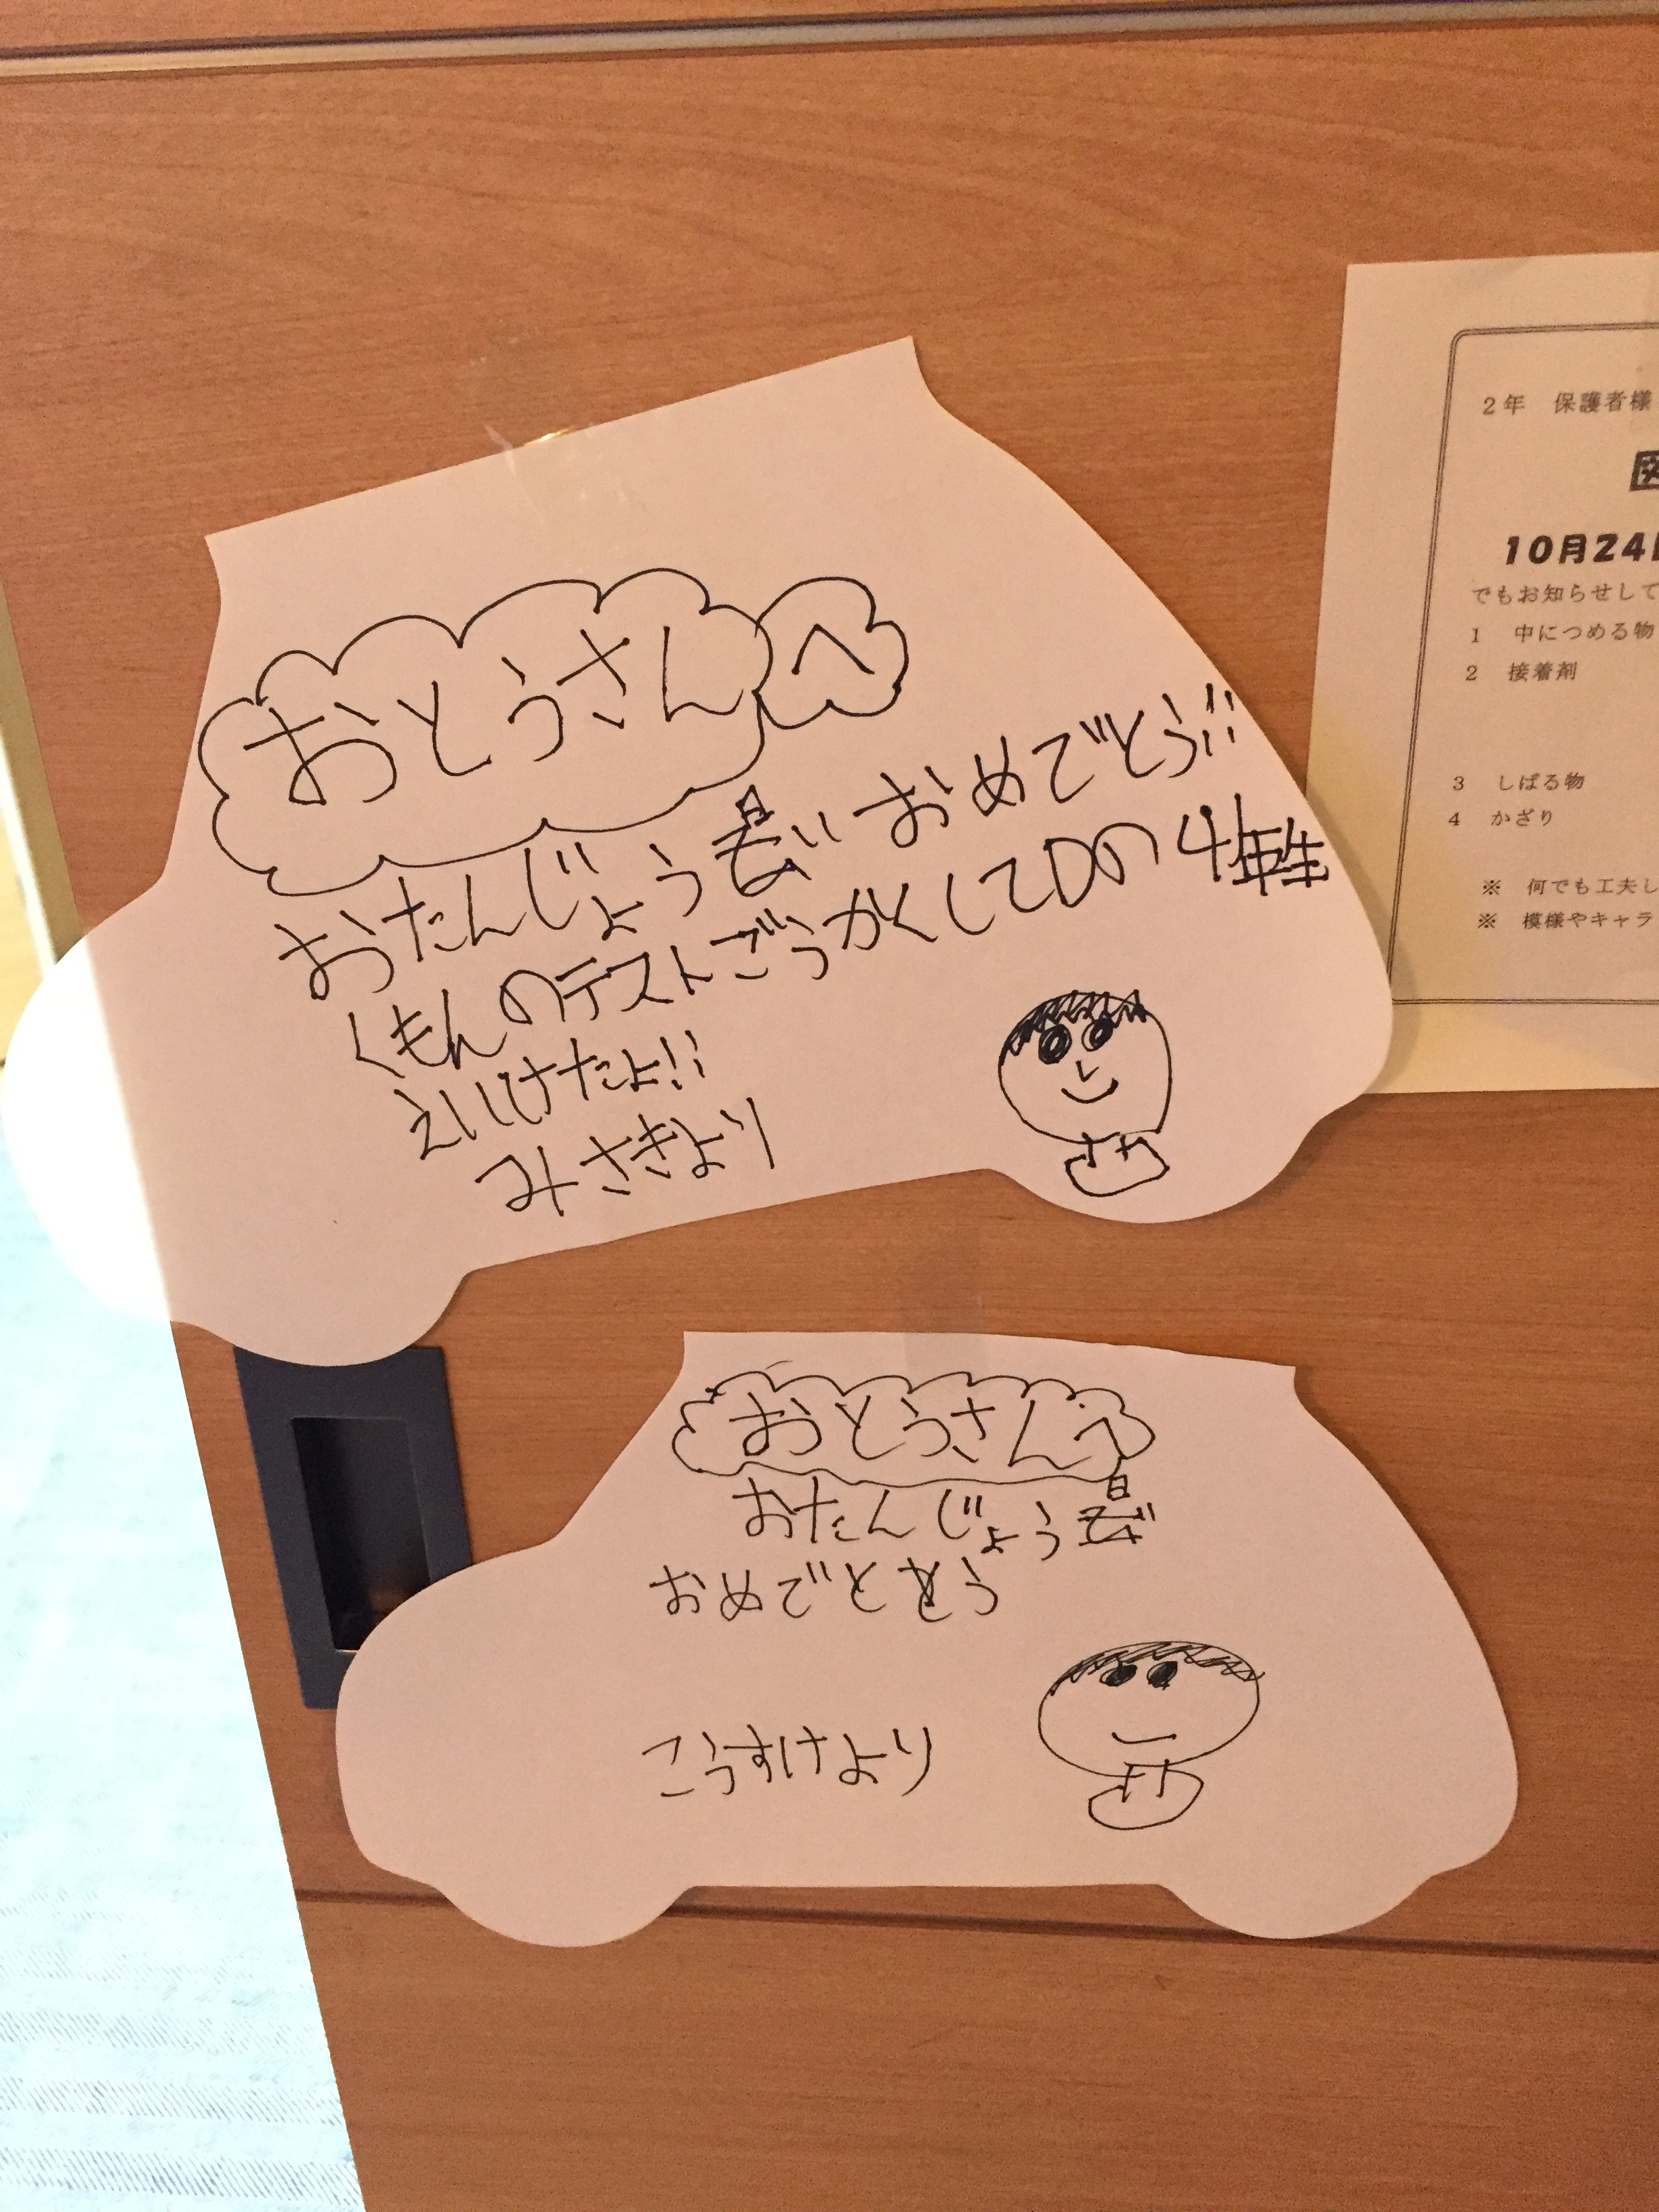 おとうさんへ
おたんじょう日おめでとう!!
くもんのテストごうかくしてDの4年生
えいけたよ!!
みさきより
おとうさんへ
おたんじょう日
おめでとう
こうすけより
2年 保護者様
10月24
でもお知らせして
1 中につめる物
2 接着剤
3 しばる物
4 かざり
※ 何でも工夫し
※ 模様やキャラ